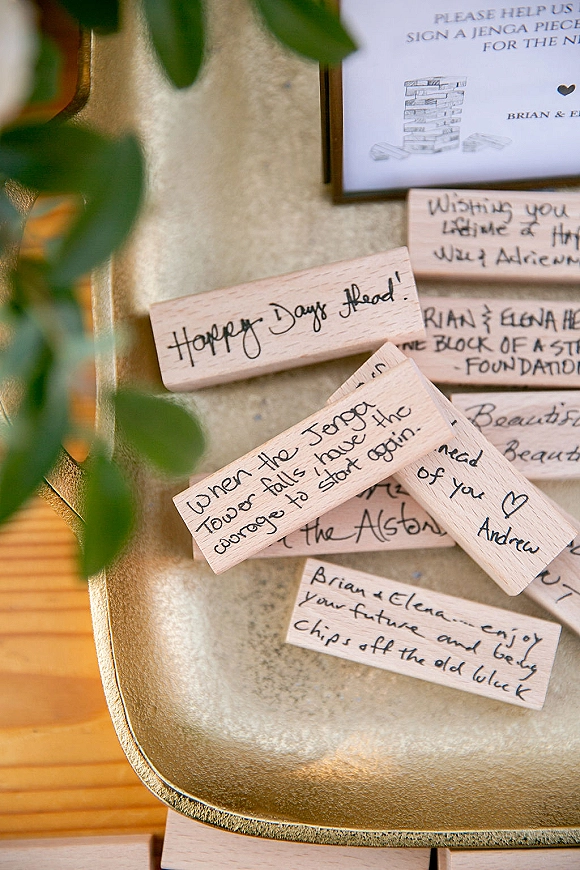 PLEASE HELP US
SIGN A JENGA PIECE
FOR THE
BRIAN &
Wishing you
Lifetime of
Adrienn
RIAN & ELENA HE
BLOCK OF A ST
-FOUNDATION
Happy Days Ahead!
Beautif
Beaut
When the Jenga
Tower falls, have the
courage to start again.
head
of you ♡
Andrew
the Alston
Brian & Elena...enjoy
your future and being
chips off the old block